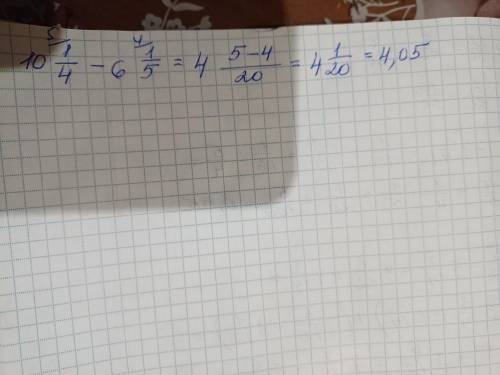 10 5/ 1/4 − 6 4/ 1/5 = 4 (5−4)/20 = 4 1/20 = 4,05